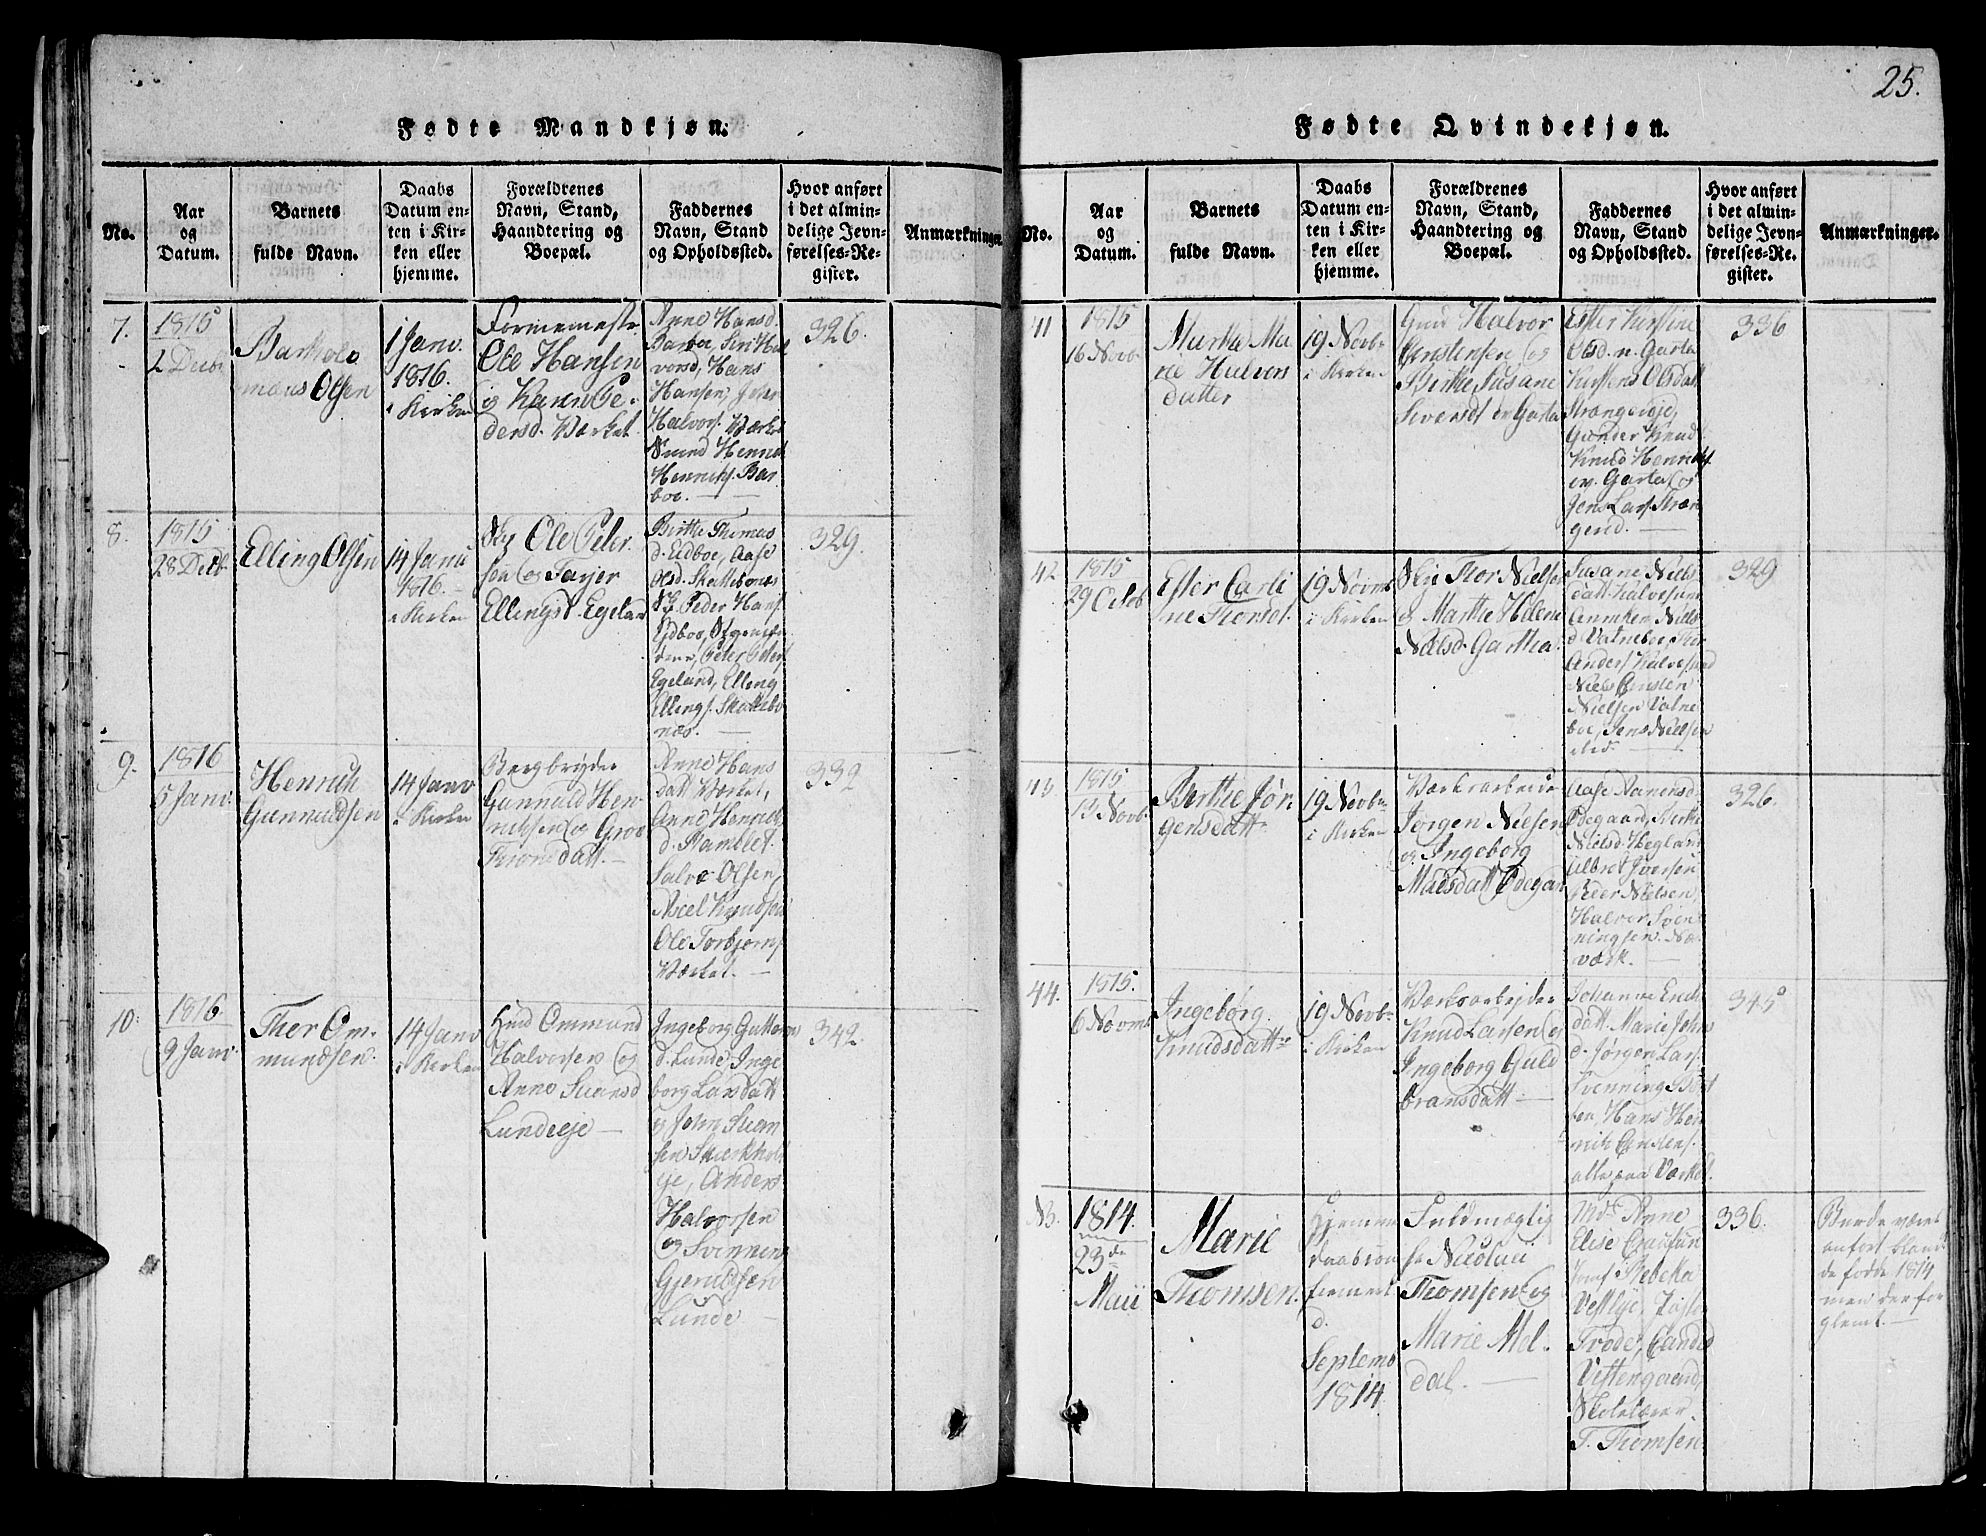 25.
Fødte Mandkjøn.
No.
Aar
og
Datum.
Barnets
fulde Navn.
Daabs
Datum en-
ten i Kir-
ken eller
hjemme.
Forældrenes
Navn, Stand,
Haandtering og
Boepæl.
Faddernes
Navn, Stand
og Opholdssted.
Hvor anført
i det almin-
delige Jevn-
førelses-Re-
gister.
Anmærkninger.
7.
1815
2 Decbr
Bartholo
mæus Olsen
1 Janv.
1816.
i Kirken
Formemester
Ole Hansen
og Karen Pe-
dersd. Værket
Anne Hansd.
Barboe, Siri Hal
vorsd, Hans
Hansen, Jens
Halvors. Værket
Svend Henrich
Henrichs. Bar
boe.
326.
8.
1815
28 Decb.
Elling Olsen
14 Janu
1816.
i Kirken
Ole Peter
sen og Tarjer
Ellingsd. Egeland
Birthe Thomas
d. Eidboe, Aase
Olsd. Skattebonæs
Peder Hans.
Eidboe,
Peter Peters.
Egeland, Elling
Ellings. Skattebo
næs.
329.
9.
1816
5 Janv.
Henrich
Gunnuldsen
14 Janv
i Kirken
Bergbryder
Gunnuld Hen
richsen og Groe
Thronsdatt.
Anne Hans
datt Værket,
Anne Henrich
d. Hamblet.
Salve Olsen,
Axel Knudsen
Ole Torbjørns.
Værket.
332
10.
1816
9 Janv.
Ther Om-
mundsen.
14 Janv
i Kirken
Hmd Ommund
Halvorsen og
Anne Svansd
Lundeeje
Ingeborg Guttorm
d. Lunde, Inge
borg Larsdatt
og John
sen
eje, Anders
Halvorsen
og Svenning
Gjeruldsen
Lunde
342.
Fødte Qvindekjøn.
No.
Aar
og
Datum.
Barnets
fulde Navn.
Daabs
Datum en-
ten i Kir-
ken eller
hjemme.
Forældrenes
Navn, Stand,
Haandtering og
Boepæl.
Faddernes
Navn, Stand
og Opholdssted.
Hvor anført
i det almin-
delige Jevn-
førelses-Re-
gister.
Anmærkninger.
41
1815
16 Novb
Marthe Ma
rie Halvors
datter
19 Novbr
i Kirken
Gmd Halvor
Christensen og
Birthe Susane
Siversdt Garta
Ester Kirstine
Olsd. Garta
Kirsten Olsdatt
Strængereje,
Gunder Knud
Knud Henrichs.
Garta og
Jens Lars. Stræn
gereid.
336
42.
1815
29 Octob
Ester Carli
ne Thorsd.
19 Novmb
i Kirken
Thor Nielsen
og Marthe Helene
Nielsd. Gartha.
Susane Niels
datt Kalvesund
Anniken Niels
d. Vatneboe, Thor
Anders. Kalvesund
Niels Christen
Nielsen Vatne
boe, Jens Nielsen
sted.
329
43.
1815
13 Novb.
Birthe Jør
gensdatt
19 Novbr
i Kirken
Værksarbeider
Jørgen Nielsen
og Ingeborg
Madsdatt Ødegaar
Aase
Ødegaard, Birthe
Nielsd. Hegland
Albret Iversen
Peder Nielsen,
Halvor Sven
ningsen. Næs
værk.
326.
44.
1815.
6 Novmb
Ingeborg
Knudsdatter
19 Novbr
i Kirken
Værksarbejder
Knud Larsen og
Ingeborg Guld
bransdatt
Johanne Erich
datt. Marie John
d. Jørgen Lars.
Svenning
sen, Hans Hen
rich Christens.
alle paa Værket.
345
NB.
1814.
23de
Maii
Marie
Thomsen.
Hjemme
daabs con
firmert
d.
Septemb
1814
Fuldmægtig
Hr Nicolaii
Thomsen og
Marie Mel-
dal.
Md. Anne
Elise
Jomf Rebeka
Vestlye,
Trode, Cand
Vistengaard,
Skolelærer
T. Thomsen
336.
Burde været
anført bland
de fødde 1814
men derfor
glemt.